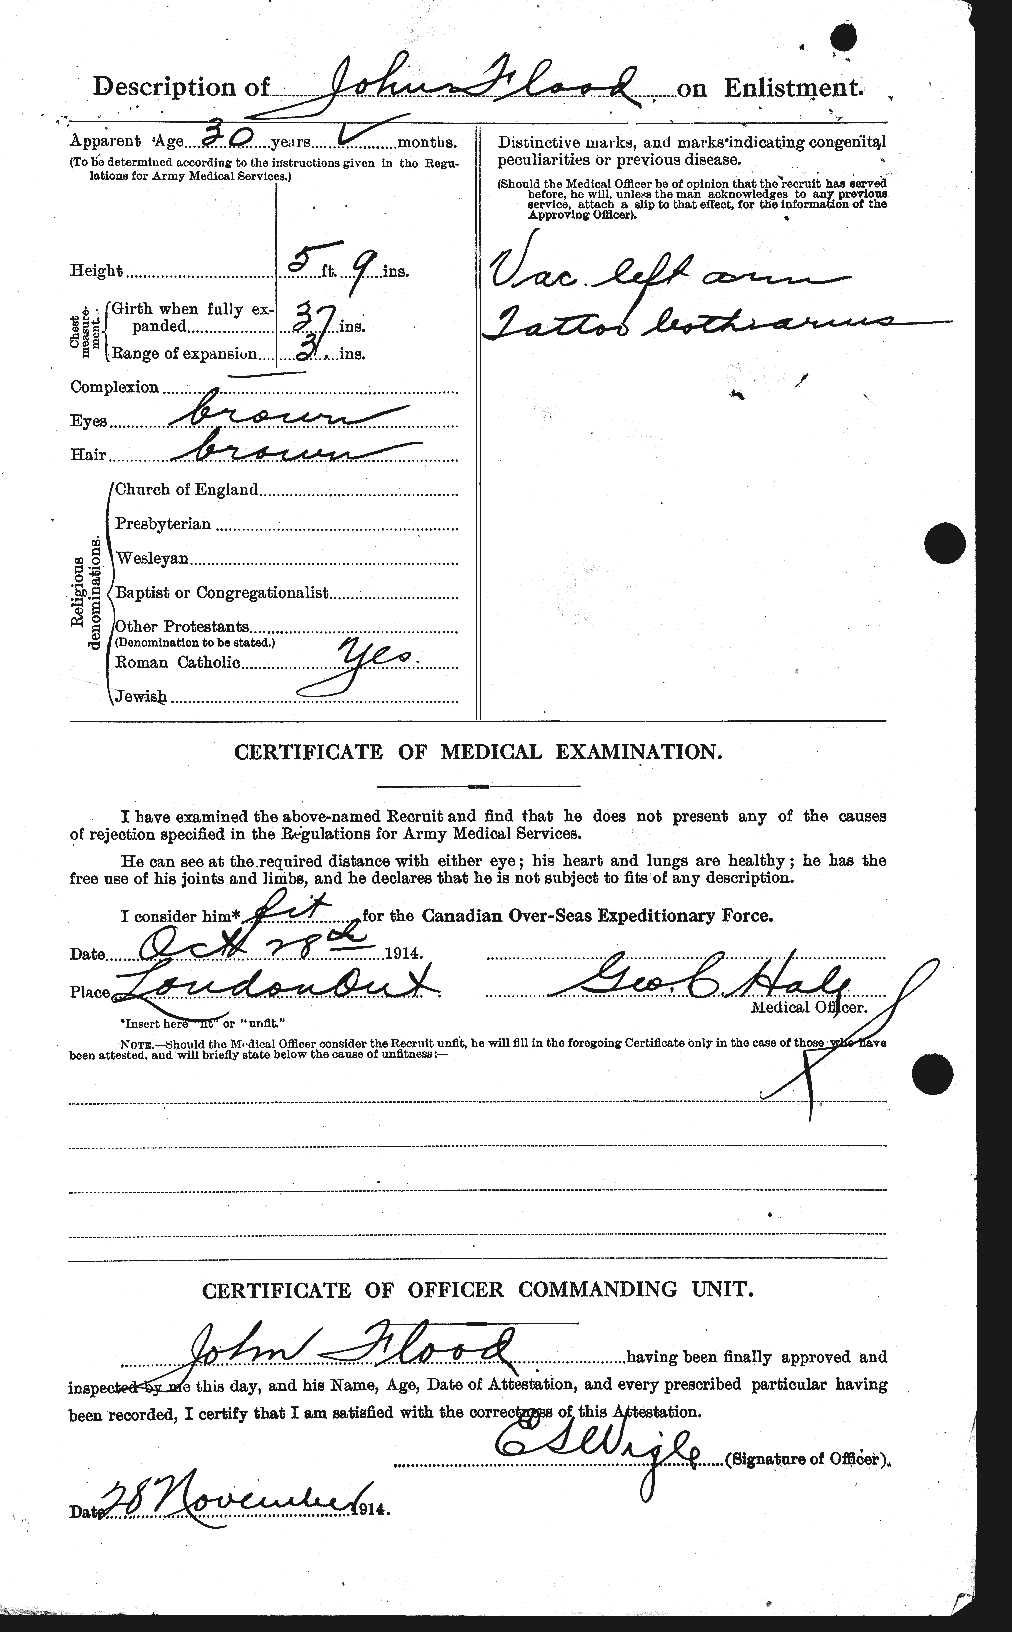 Description of John Flood on Enlistment.
Apparent Age 30 years months.
(To be determined according to the instructions given in the Regu-
lations for Army Medical Services.)
Height 5 ft. 9 ins.
Chest measure-ment.
Girth when fully ex-
panded 37 ins.
Range of expansion 3 ins.
Complexion
Eyes brown
Hair brown
Religious denominations.
Church of England
Presbyterian
Wesleyan
Baptist or Congregationalist
Other Protestants
(Denomination to be stated.)
Roman Catholic Yes.
Jewish
Distinctive marks, and marks indicating congenital
peculiarities or previous disease.
(Should the Medical Officer be of opinion that the recruit has served
before, he will, unless the man acknowledges to any previous
service, attach a slip to that effect, for the information of the
Approving Officer).
Vac. left arm
Tattoo both arms
CERTIFICATE OF MEDICAL EXAMINATION.
I have examined the above-named Recruit and find that he does not present any of the causes
of rejection specified in the Regulations for Army Medical Services.
He can see at the required distance with either eye; his heart and lungs are healthy; he has the
free use of his joints and limbs, and he declares that he is not subject to fits of any description.
I consider him* fit for the Canadian Over-Seas Expeditionary Force.
Date Oct 28th 1914.
Place London Ont. Geo. C. Hale
Medical Officer.
*Insert here "fit" or "unfit."
NOTE.—Should the Medical Officer consider the Recruit unfit, he will fill in the foregoing Certificate only in the case of those who have
been attested, and will briefly state below the cause of unfitness:—
CERTIFICATE OF OFFICER COMMANDING UNIT.
John Flood having been finally approved and
inspected by me this day, and his Name, Age, Date of Attestation, and every prescribed particular having
been recorded, I certify that I am satisfied with the correctness of this Attestation.
E S Wigle (Signature of Officer).
Date 28 November 1914.